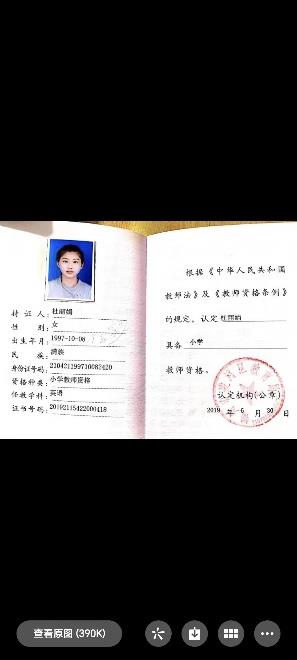 持证人：杜丽娟
性别：女
出生年月：1997-10-08
民族：满族
身份证号码：210421199710082420
资格种类：小学教师资格
任教学科：英语
证书号码：20192115422000418
根据《中华人民共和国
教师法》及《教师资格条例》
的规定，认定 杜丽娟
具备 小学
教师资格。
认定机构(公章)
2019 年 6 月 30 日
查看原图 (390K)